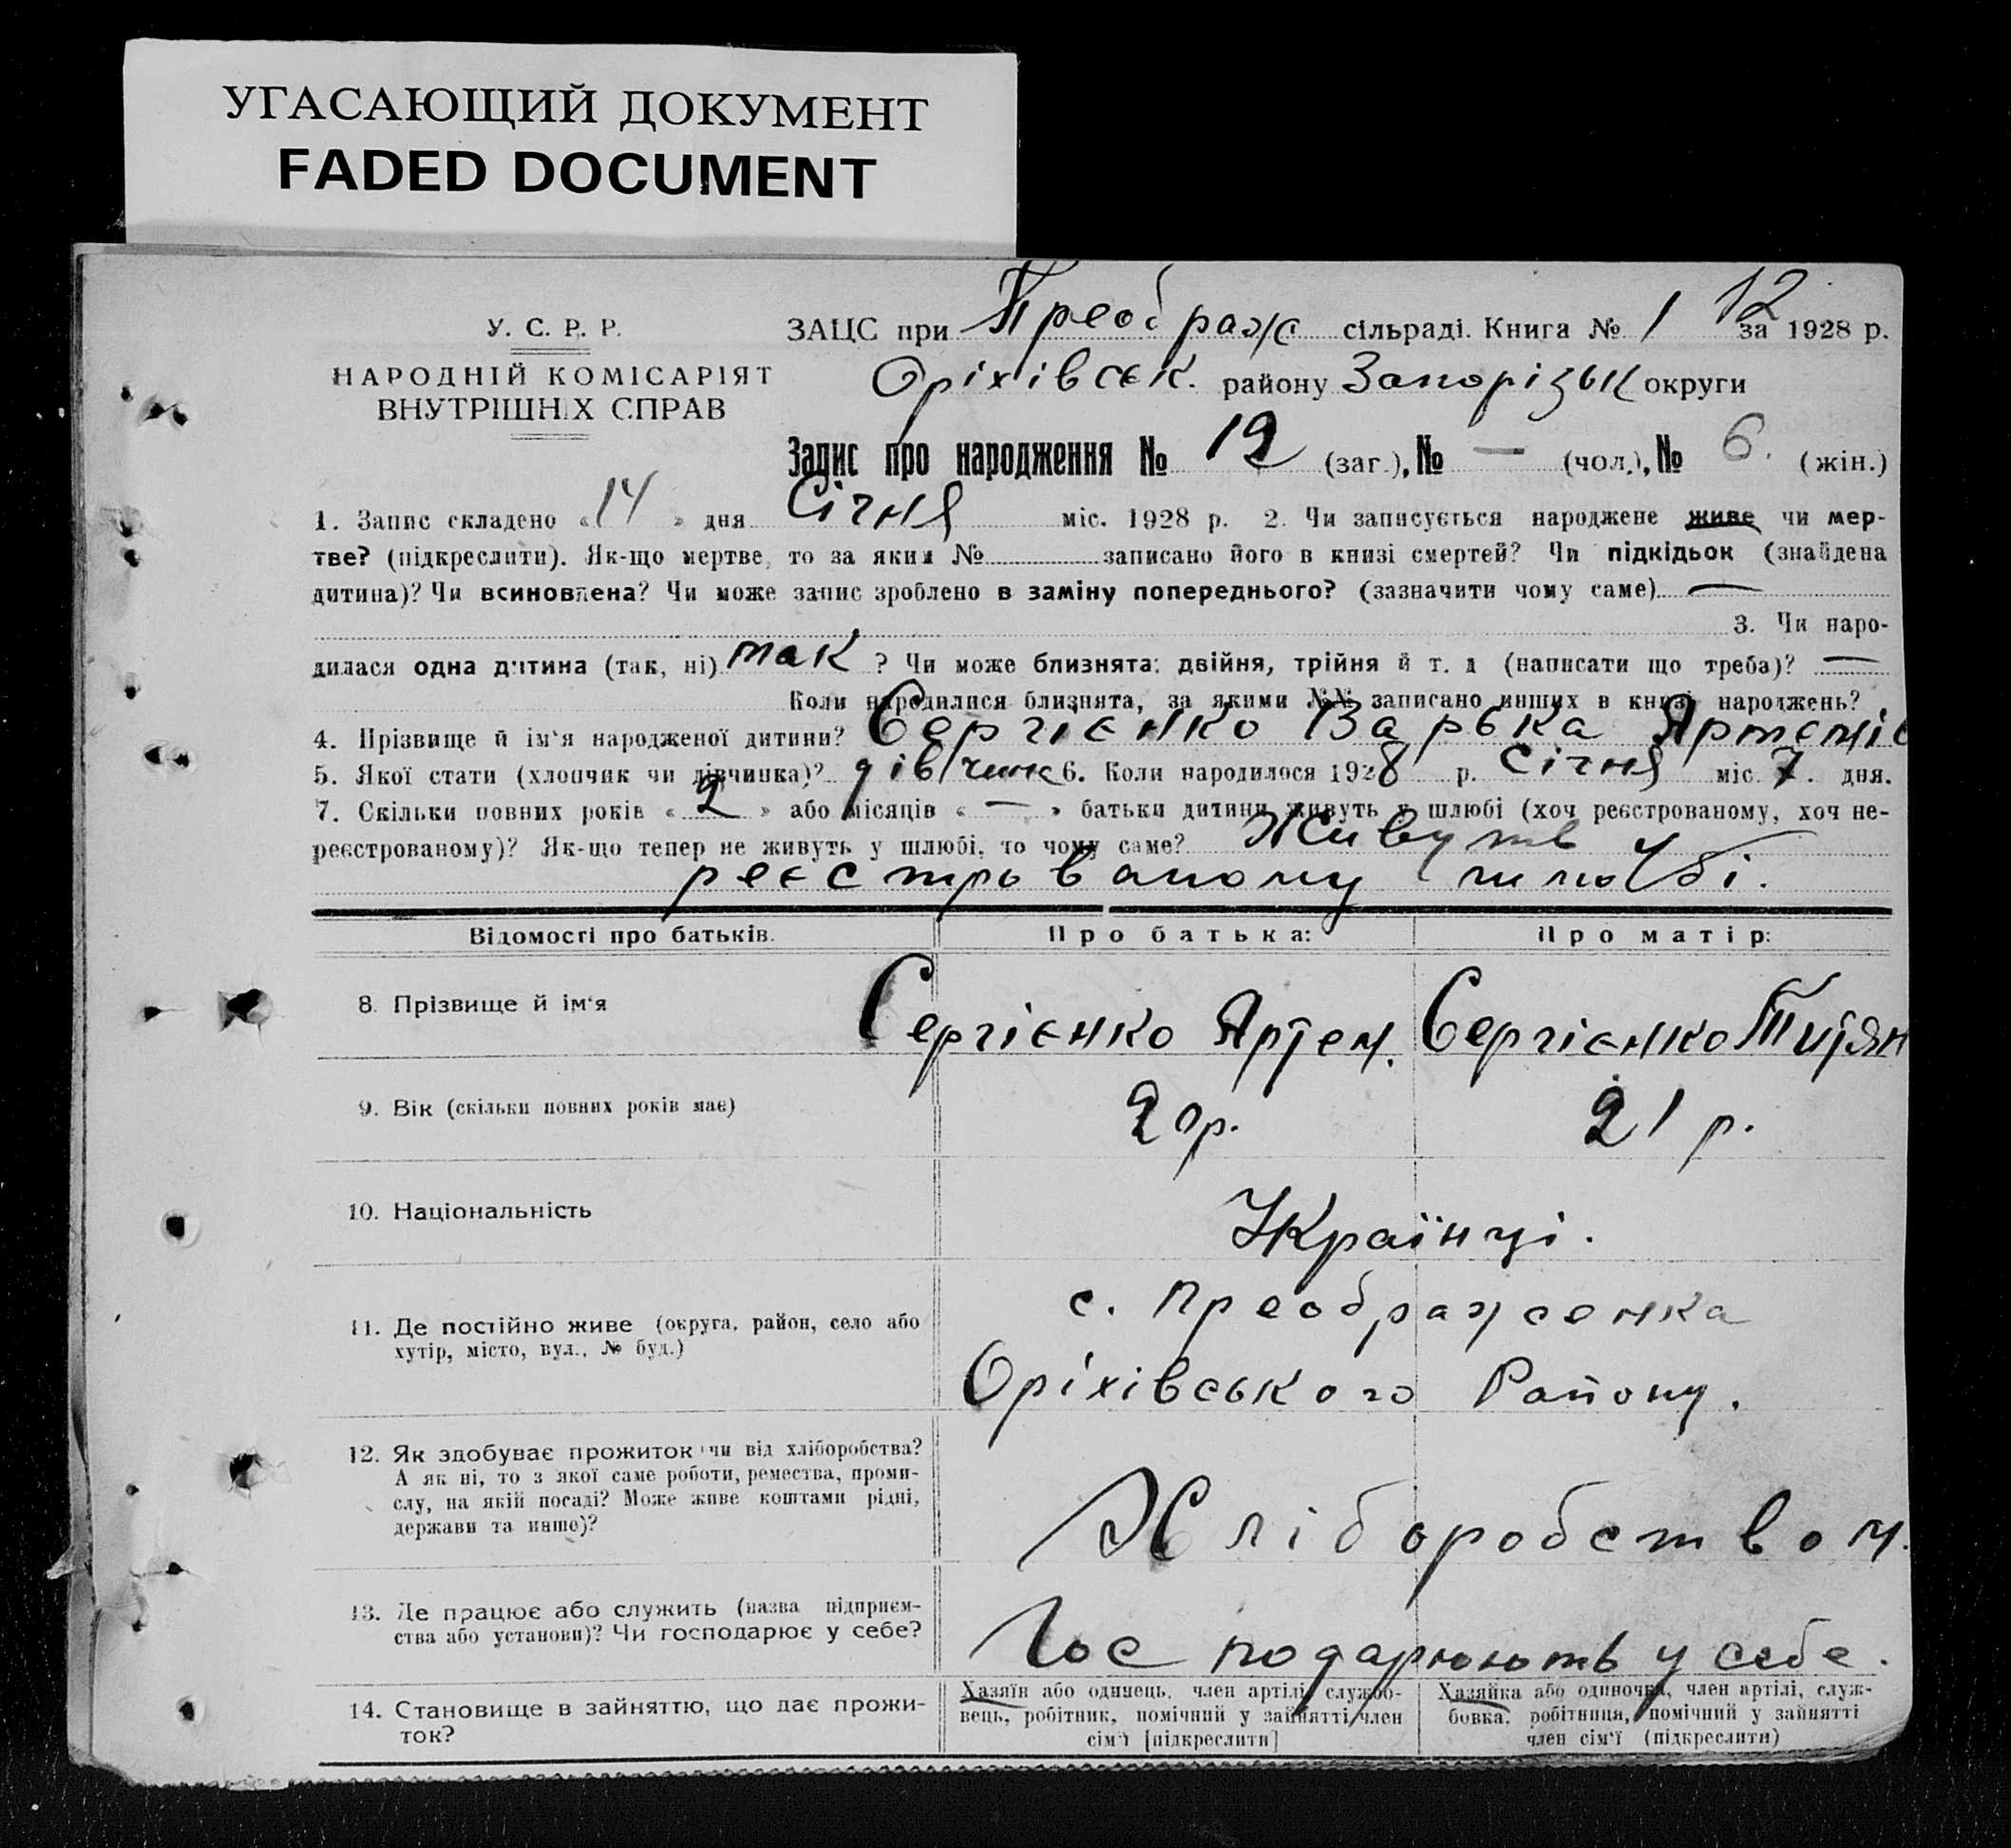 УГАСАЮЩИЙ ДОКУМЕНТ
FADED DOCUMENT
12
У. С. Р. Р.
НАРОДНІЙ КОМІСАРІЯТ
ВНУТРІШНІХ СПРАВ
ЗАЦС при Преображ сільраді. Книга № 1 за 1928 р.
Оріхівськ. району Запорізьк округи
Запис про народження № 12 (заг.), № — (чол.), № 6. (жін.)
1. Запис складено «14» дня Січня міс. 1928 р. 2. Чи записується народжене живе чи мер-
тве? (підкреслити). Як-що мертве, то за яким № записано його в книзі смертей? Чи підкідьок (знайдена
дитина)? Чи всиновлена? Чи може запис зроблено в заміну попереднього? (зазначити чому саме) —
3. Чи наро-
дилася одна дитина (так, ні) так ? Чи може близнята: двійня, трійня й т. д (написати що треба)? —
Коли народилися близнята, за якими №№ записано инших в книзі народжень?
4. Прізвище й ім'я народженої дитини? Сергієнко Варька Яртемів
5. Якої стати (хлопчик чи дівчинка)? дівчинк 6. Коли народилося 1928 р. Січня міс. 7. дня.
7. Скільки повних років «2» або місяців «—» батьки дитини живуть у шлюбі (хоч реєстрованому, хоч не-
реєстрованому)? Як-що тепер не живуть у шлюбі, то чому саме? Живуть
реєстрованому шлюбі.
Відомості про батьків.
Про батька:
Про матір:
8. Прізвище й ім'я
Сергієнко Яртем. Сергієнко Титян
9. Вік (скільки повних років має)
20р. 21 р.
10. Національність
Українці.
11. Де постійно живе (округа, район, село або
хутір, місто, вул., № буд.)
с. Преображенка
Оріхівського Району.
12. Як здобуває прожиток (чи від хліборобства?
А як ні, то з якої саме роботи, ремества, проми-
слу, на якій посаді? Може живе коштами рідні,
держави та инше)?
Хліборобством.
13. Де працює або служить (назва підприєм-
ства або установи)? Чи господарює у себе?
Господарюють у себе.
14. Становище в зайняттю, що дає прожи-
ток?
Хазяїн або одинець, член артілі, службо-
вець, робітник, помічний у зайнятті член
сім'ї [підкреслити]
Хазяйка або одиночка, член артілі, служ-
бовка, робітниця, помічний у зайнятті
член сім'ї (підкреслити)